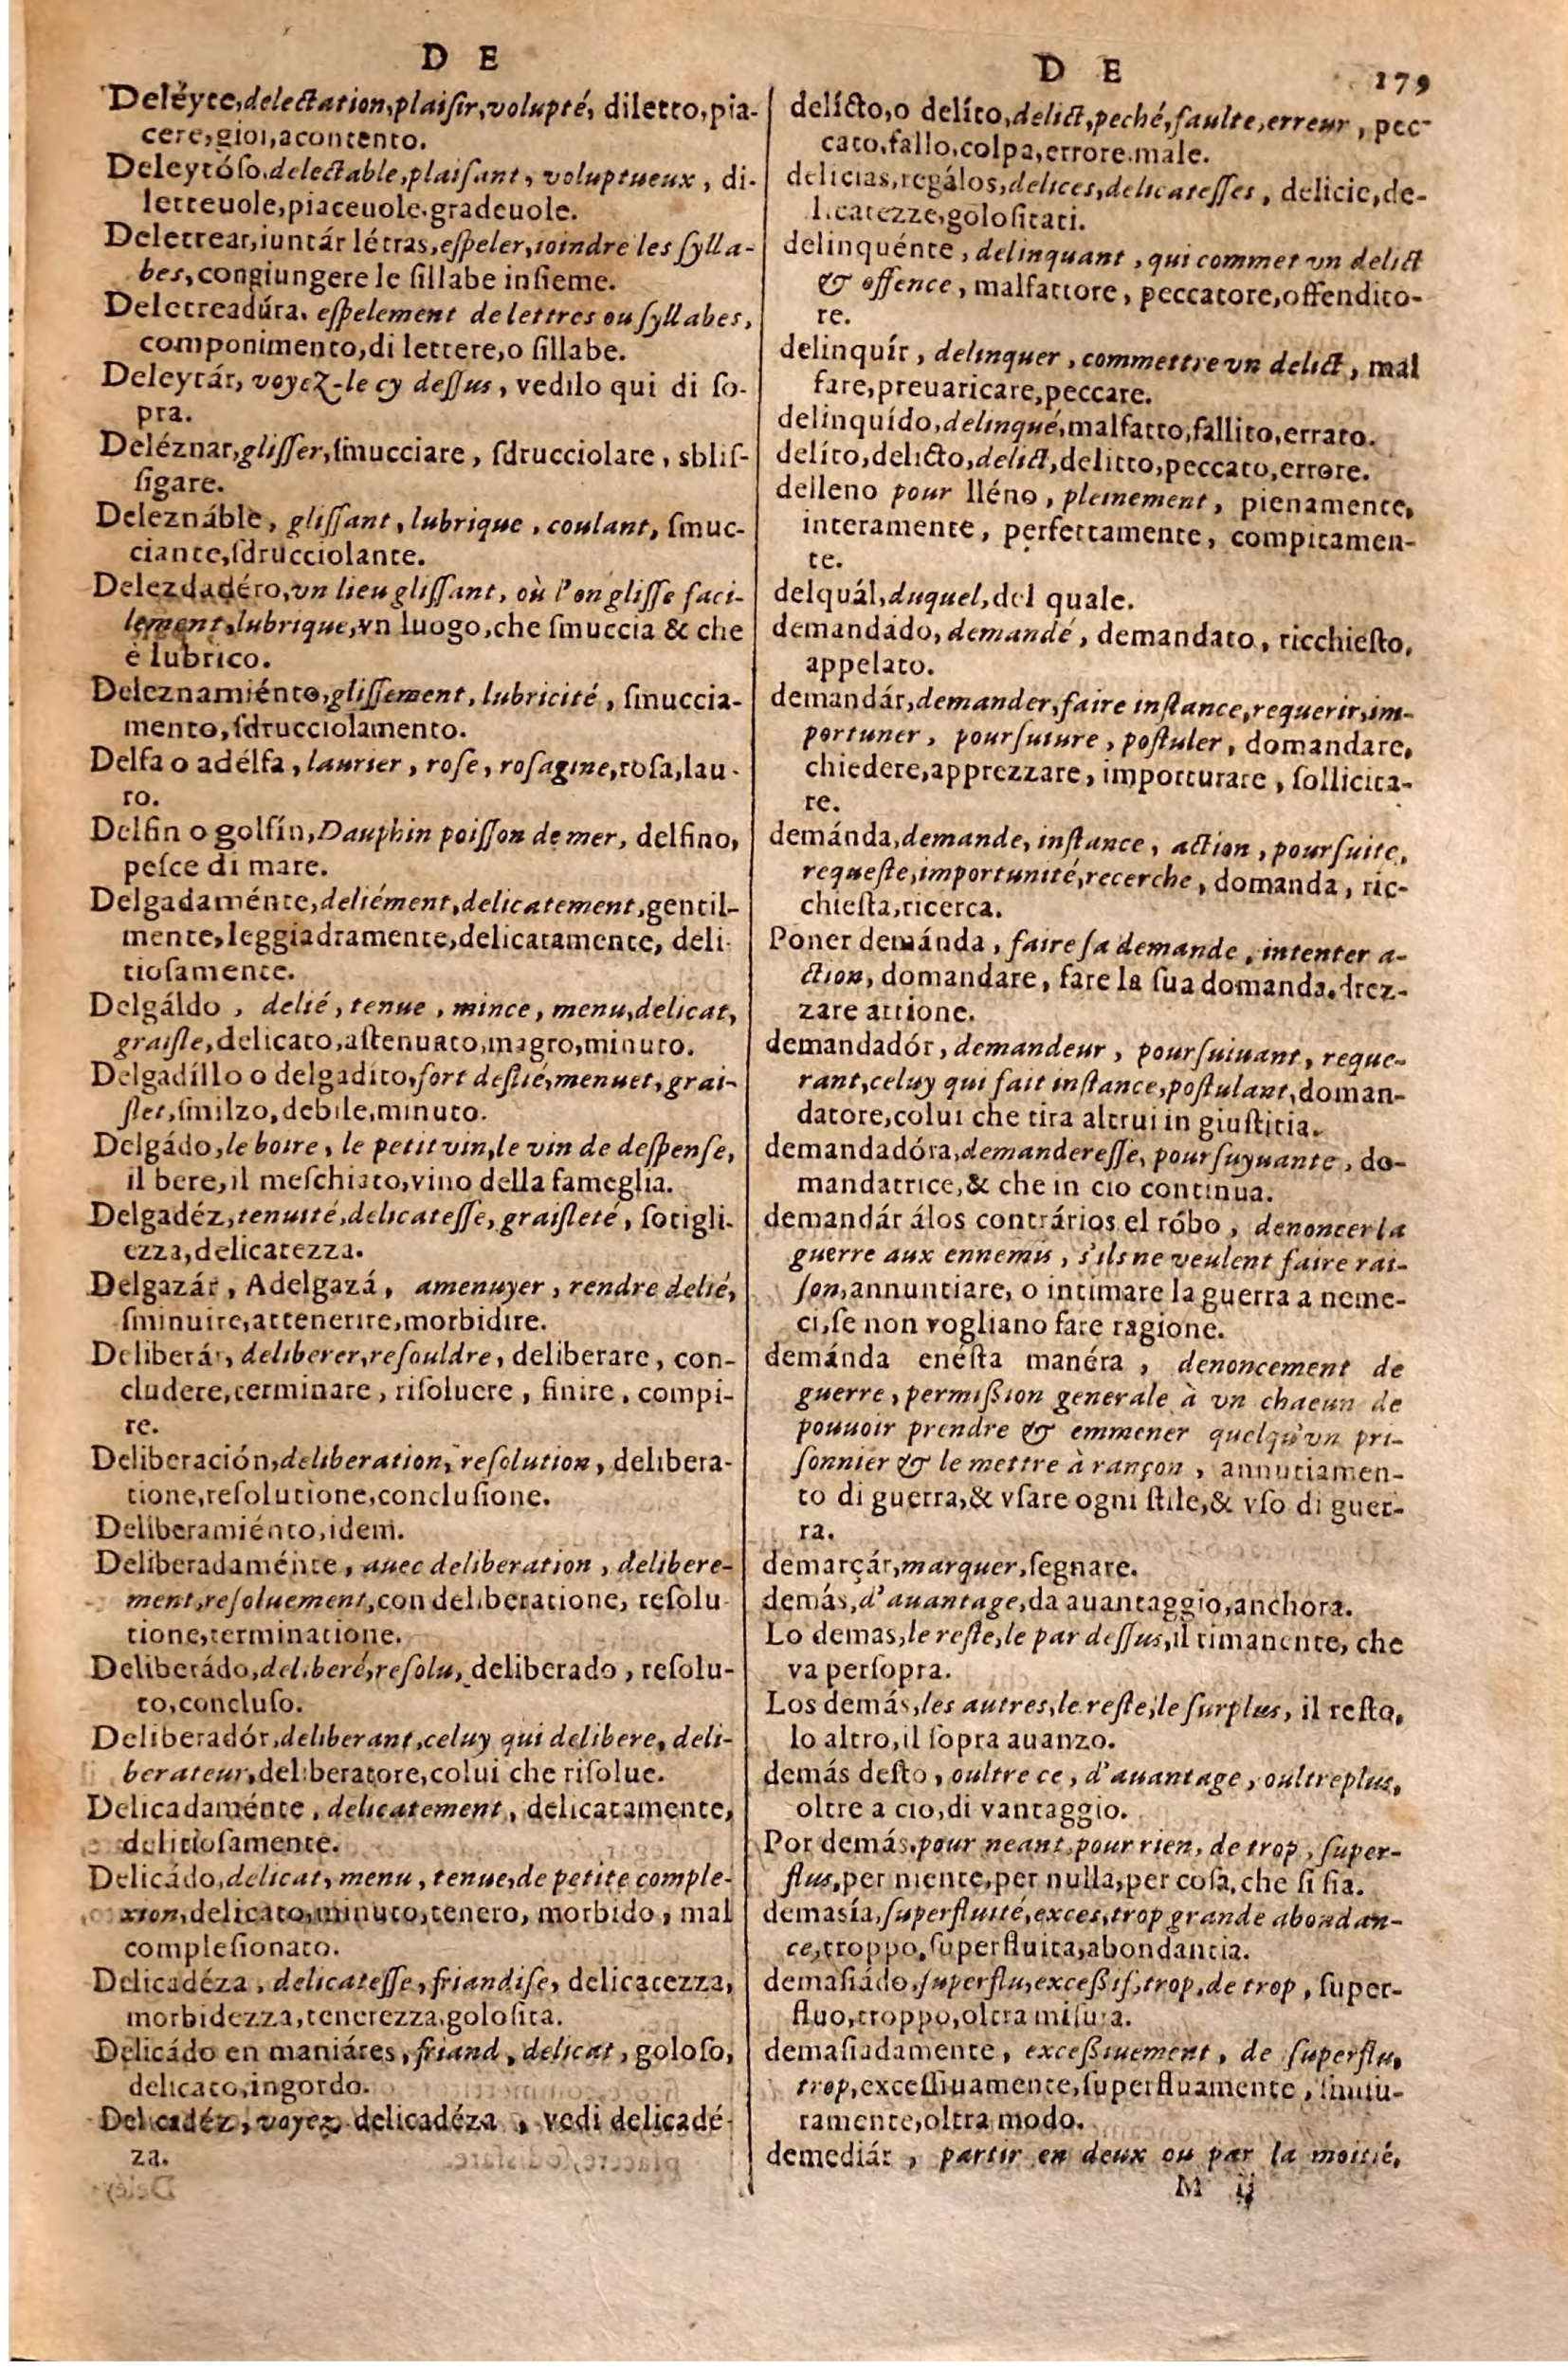 D E
Deléyte, delectation, plaisir, volupté, diletto, pia-
cere, gioi, acontento.
Deleytóſo, delectable, plaiſant, voluptueux, di-
letteuole, piaceuole, gradeuole.
Deletrear, iuntár létras, eſpeler, ioindre les ſylla-
bes, congiungere le ſillabe inſieme.
Deletreadúra, eſpelement de lettres ou ſyllabes,
componimento, di lettere, o ſillabe.
Deleytár, voyez-le cy deſſus, vedilo qui di ſo-
pra.
Deléznar, gliſſer, ſmucciare, ſdrucciolare, sbliſ-
ſigare.
Deleznáble, gliſſant, lubrique, coulant, ſmuc-
ciante, ſdrucciolante.
Delezdadéro, vn lieu gliſſant, où l'on gliſſe faci-
lement, lubrique, vn luogo, che ſmuccia & che
è lubrico.
Deleznamiénto, gliſſement, lubricité, ſmuccia-
mento, ſdrucciolamento.
Delfa o adélfa, laurier, roſe, roſagine, roſa, lau-
ro.
Delfin o golfín, Dauphin poiſſon de mer, delfino,
peſce di mare.
Delgadaménte, deliément, delicatement, gentil-
mente, leggiadramente, delicatamente, deli-
tioſamente.
Delgáldo, delié, tenue, mince, menu, delicat,
graiſle, delicato, aſtenuato, magro, minuto.
Delgadíllo o delgadito, fort deſlié, menuet, grai-
ſlet, ſmilzo, debile, minuto.
Delgádo, le boire, le petit vin, le vin de deſpenſe,
il bere, il meſchiato, vino della fameglia.
Delgadéz, tenuité, delicateſſe, graiſleté, ſotigli-
ezza, delicatezza.
Delgazár, Adelgazá, amenuyer, rendre delié,
ſminuire, attenerire, morbidire.
Deliberár, deliberer, reſouldre, deliberare, con-
cludere, terminare, riſoluere, finire, compi-
re.
Deliberación, deliberation, reſolution, delibera-
tione, reſolutione, concluſione.
Deliberamiénto, idem.
Deliberadaménte, auec deliberation, delibere-
ment, reſoluement, con deliberatione, reſolu
tione, terminatione.
Deliberádo, deliberé, reſolu, deliberado, reſolu-
to, concluſo.
Deliberadór, deliberant, celuy qui delibere, deli-
berateur, deliberatore, colui che riſolue.
Delicadaménte, delicatement, delicatamente,
delitioſamente.
Delicádo, delicat, menu, tenue, de petite comple-
xion, delicato, minuto, tenero, morbido, mal
compleſionato.
Delicadéza, delicateſſe, friandiſe, delicatezza,
morbidezza, tenerezza, goloſita.
Delicádo en maniáres, friand, delicat, goloſo,
delicato, ingordo.
Delicadéz, voyez delicadéza, vedi delicadé-
za.
D E
179
delícto, o delíto, delict, peché, faulte, erreur, pec-
cato, fallo, colpa, errore, male.
delicias, regálos, delices, delicateſſes, delicie, de-
licatezze, goloſitati.
delinquénte, delinquant, qui commet vn delict
& offence, malfattore, peccatore, offendito-
re.
delinquír, delinquer, commettre vn delict, mal
fare, preuaricare, peccare.
delinquído, delinqué, malfatto, fallito, errato.
delíto, delicto, delict, delitto, peccato, errore.
delleno pour lléno, pleinement, pienamente,
interamente, perfettamente, compitamen-
te.
delquál, duquel, del quale.
demandádo, demandé, demandato, ricchieſto,
appelato.
demandár, demander, faire inſtance, requerir, im-
portuner, pourſuiure, poſtuler, domandare,
chiedere, apprezzare, importurare, ſollicita-
re.
demánda, demande, inſtance, action, pourſuite,
requeſte, importunité, recerche, domanda, ric-
chieſta, ricerca.
Poner demánda, faire ſa demande, intenter a-
ction, domandare, fare la ſua domanda, drez-
zare attione.
demandadór, demandeur, pourſuiuant, reque-
rant, celuy qui fait inſtance, poſtulant, doman-
datore, colui che tira altrui in giuſtitia.
demandadóra, demandereſſe, pourſuyuante, do-
mandatrice, & che in cio continua.
demandár álos contrários el róbo, denoncer la
guerre aux ennemis, s'ils ne veulent faire rai-
ſon, annuntiare, o intimare la guerra a neme-
ci, ſe non vogliano fare ragione.
demánda enéſta manéra, denoncement de
guerre, permiſſion generale à vn chacun de
pouuoir prendre & emmener quelqu'vn pri-
ſonnier & le mettre à rançon, annutiamen-
to di guerra, & vſare ogni ſtile, & vſo di guer-
ra.
demarçár, marquer, ſegnare.
demás, d'auantage, da auantaggio, anchora.
Lo demas, le reſte, le par deſſus, il rimanente, che
va perſopra.
Los demás, les autres, le reſte, le ſurplus, il reſto,
lo altro, il ſopra auanzo.
demás deſto, oultre ce, d'auantage, oultreplus,
oltre a cio, di vantaggio.
Por demás, pour neant, pour rien, de trop, ſuper-
flus, per niente, per nulla, per coſa, che ſi ſia.
demasía, ſuperfluité, exces, trop grande abondan-
ce, troppo, ſuperfluita, abondantia.
demaſiádo, ſuperflu, exceßif, trop, de trop, ſuper-
fluo, troppo, oltra miſura.
demaſiadamente, exceßiuement, de ſuperflu,
trop, exceſſiuamente, ſuperfluamente, ſmiſu-
ramente, oltra modo.
demediár, partir en deux ou par la moitié,
M ij